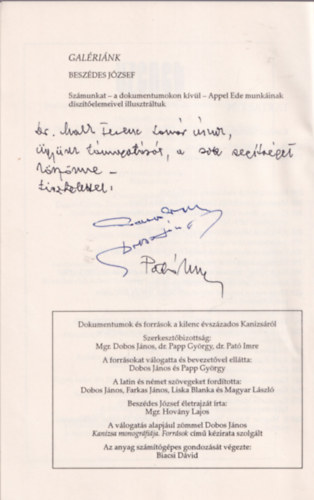 GALÉRIÁNK
BESZÉDES JÓZSEF
Számunkat – a dokumentumokon kívül – Appel Ede munkáinak
díszítőelemeivel illusztráltuk
Dr. Ferenc tanár úrnak,
támogatását, a sok segítséget
köszönve –
tisztelettel:
Dobos János
Dokumentumok és források a kilenc évszázados Kanizsáról
Szerkesztőbizottság:
Mgr. Dobos János, dr. Papp György, dr. Pató Imre
A forrásokat válogatta és bevezetővel ellátta:
Dobos János és Papp György
A latin és német szövegeket fordította:
Dobos János, Farkas János, Liska Blanka és Magyar László
Beszédes József életrajzát írta:
Mgr. Hovány Lajos
A válogatás alapjául zömmel Dobos János
Kanizsa monográfiája. Források című kézirata szolgált
Az anyag számítógépes gondozását végezte:
Biacsi Dávid